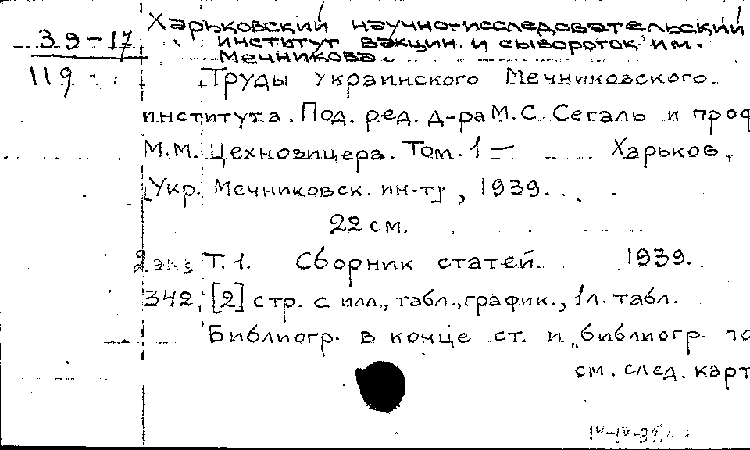 Харьковский научно-исследовательский
39-17 институт вакцин и сывороток им.
Мечникова.
119 Труды Украинского Мечниковского
института. Под. ред. д-ра М.С. Сегаль и проф
М.М. Цехновицера. Том. 1 — Харьков,
Укр. Мечниковск. ин-ту, 1939.
22 см.
2 экз Т. 1. Сборник статей. 1939.
342, [2] стр. с илл., табл., график., 1 л. табл.
Библиогр. в конце ст. и "библиогр.
см. след. карт